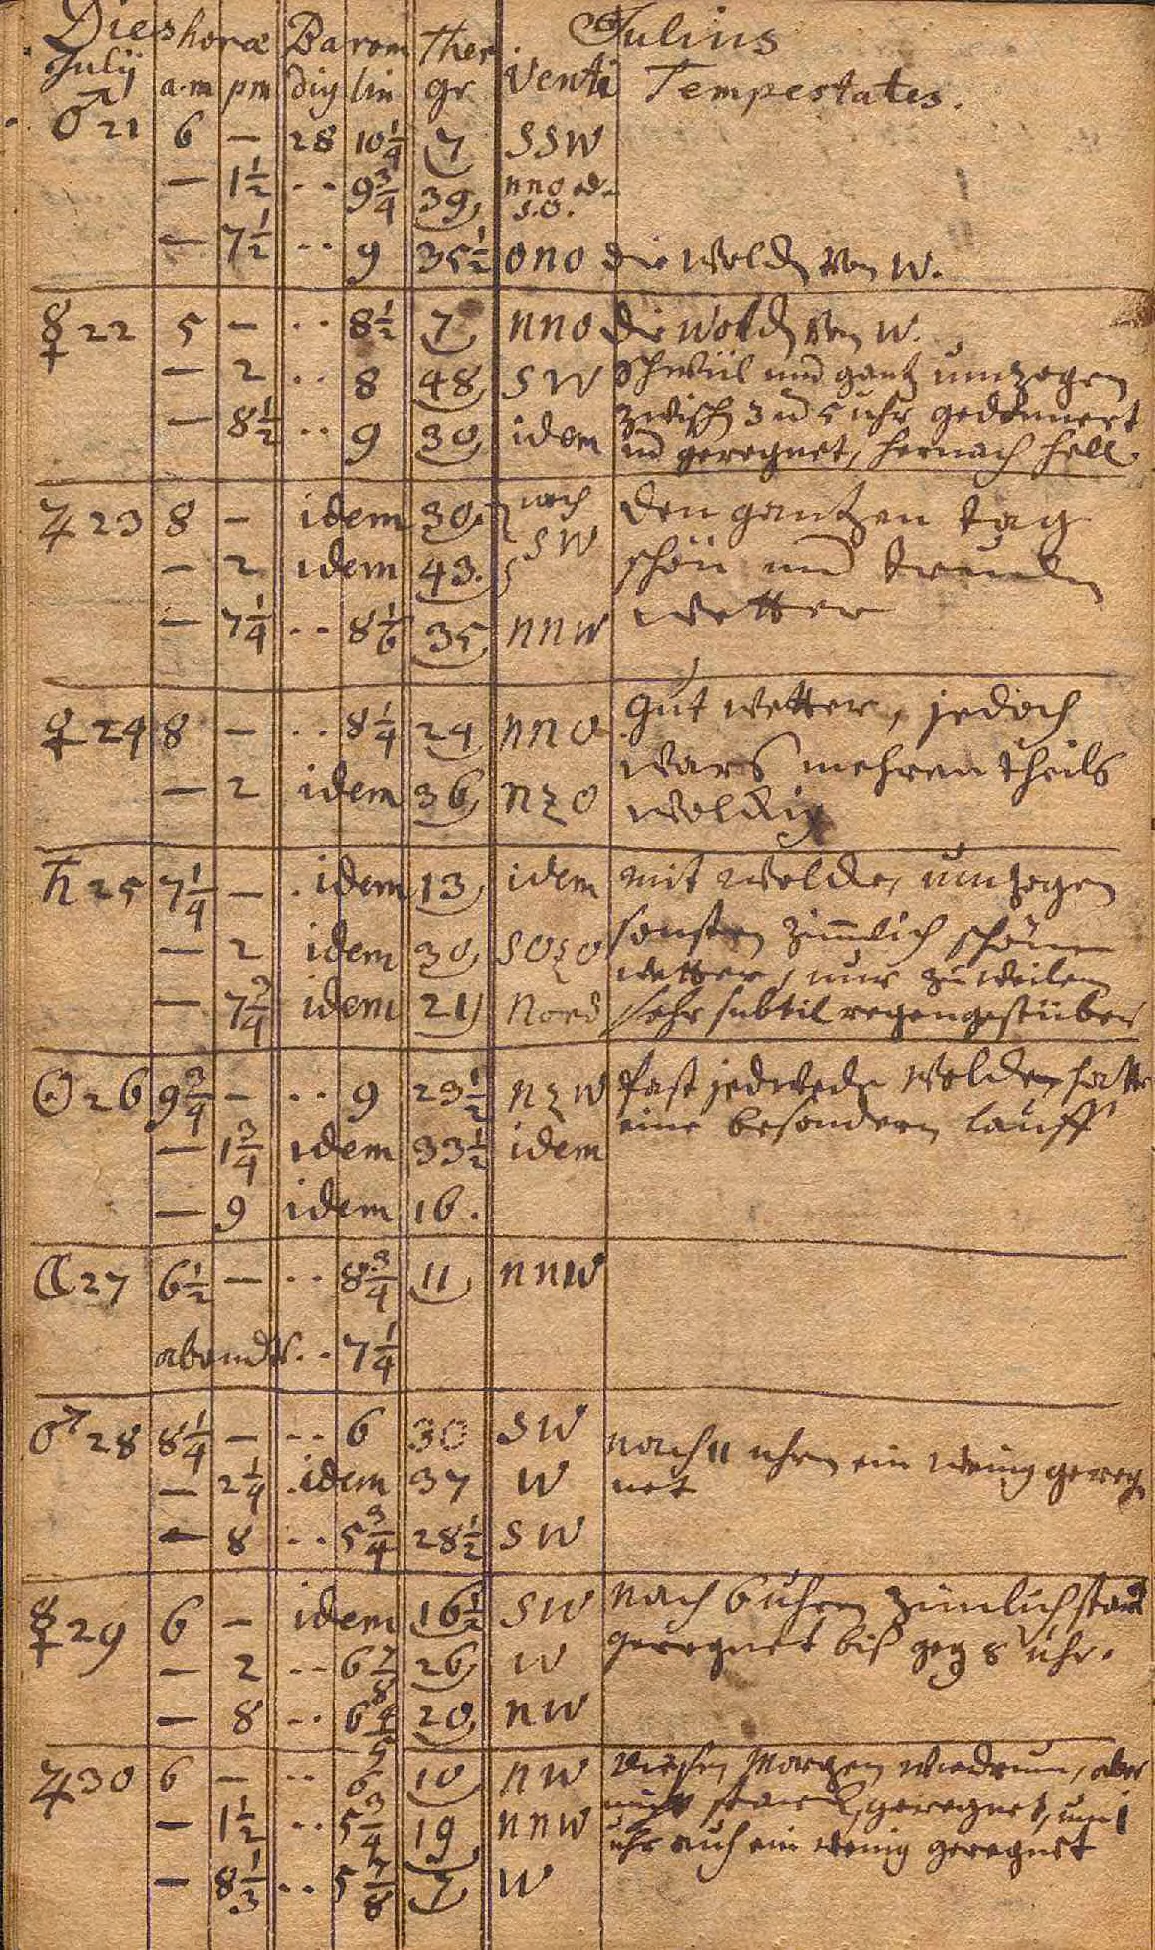 Dies horæ Barom Ther Julius
Julij a.m pm dig lin gr. Venti Tempestates.
♂ 21 6 — 28 10 1/4 7 SSW
— 1 1/2 .. 9 3/4 39 nno od.
S.O.
— 7 1/2 .. 9 35 1/2 ONO die Wolckn von W.
☿ 22 5 — .. 8 1/2 7 NNO die Wolckn von W.
— 2 .. 8 48 SW Schwül und gantz umzogen
— 8 1/2 .. 9 30 idem zwisch 3 ud 5 uhr gedonnert
ud geregnet, hernach hell.
♃ 23 8 — idem 30. noch den gantzen tag
— 2 idem 43. SW schön und
— 7 1/4 .. 8 1/6 35 NNW wetter
♀ 24 8 — .. 8 1/4 24 NNO gut wetter, jedoch
— 2 idem 36 NzO wars mehrentheils
wolckig
♄ 25 7 1/4 — . idem 13 idem mit wolcken umzogen
— 2 idem 30 SOzO sonsten zimlich schön
wetter, nur zuweilen
— 7 3/4 idem 21 Nord sehr subtil regengestüber
☉ 26 9 3/4 — .. 9 23 1/2 NzW fast jedwede Wolcken hatte
— 1 3/4 idem 33 1/2 idem eine besondern lauff
— 9 idem 16.
☾ 27 6 1/2 — .. 8 3/4 11 NNW
abends .. 7 1/4
♂ 28 8 1/4 — .. 6 30 SW nach 11 uhren ein wenig gereg-
— 2 1/4 . idem 37 W net
— 8 .. 5 3/4 28 1/2 SW
☿ 29 6 — idem 16 1/2 SW nach 6 uhren zimlich starck
— 2 .. 6 7/8 26 W geregnet biß geg 8 uhr.
— 8 .. 6 4/5 20 NW
♃ 30 6 — .. 6 10 NW diesen Morgen wiedrum, aber
— 1 1/2 .. 5 3/4 19 NNW nicht starck, geregnet, um 1
uhr auch ein wenig geregnet
— 8 1/3 .. 5 7/8 7 W